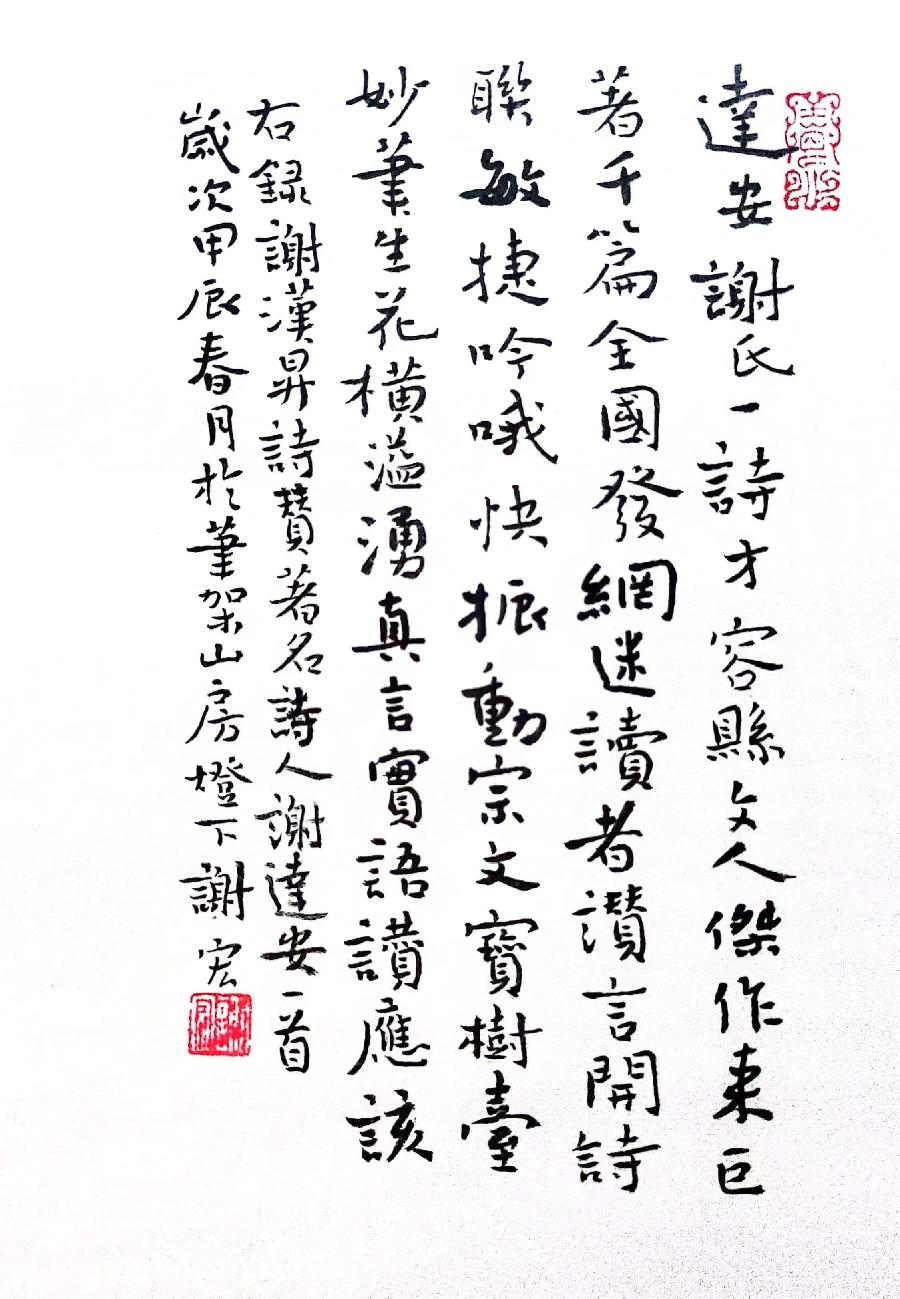 達安謝氏一詩才容縣文人傑作来巨
著千篇全國發網迷讀者讚言開詩
聯敏捷吟哦快振動宗文寶樹臺
妙筆生花橫溢湧真言實語讚應該
右録謝漢昇詩贊著名詩人謝達安一首
歲次甲辰春月於筆架山房燈下謝宏